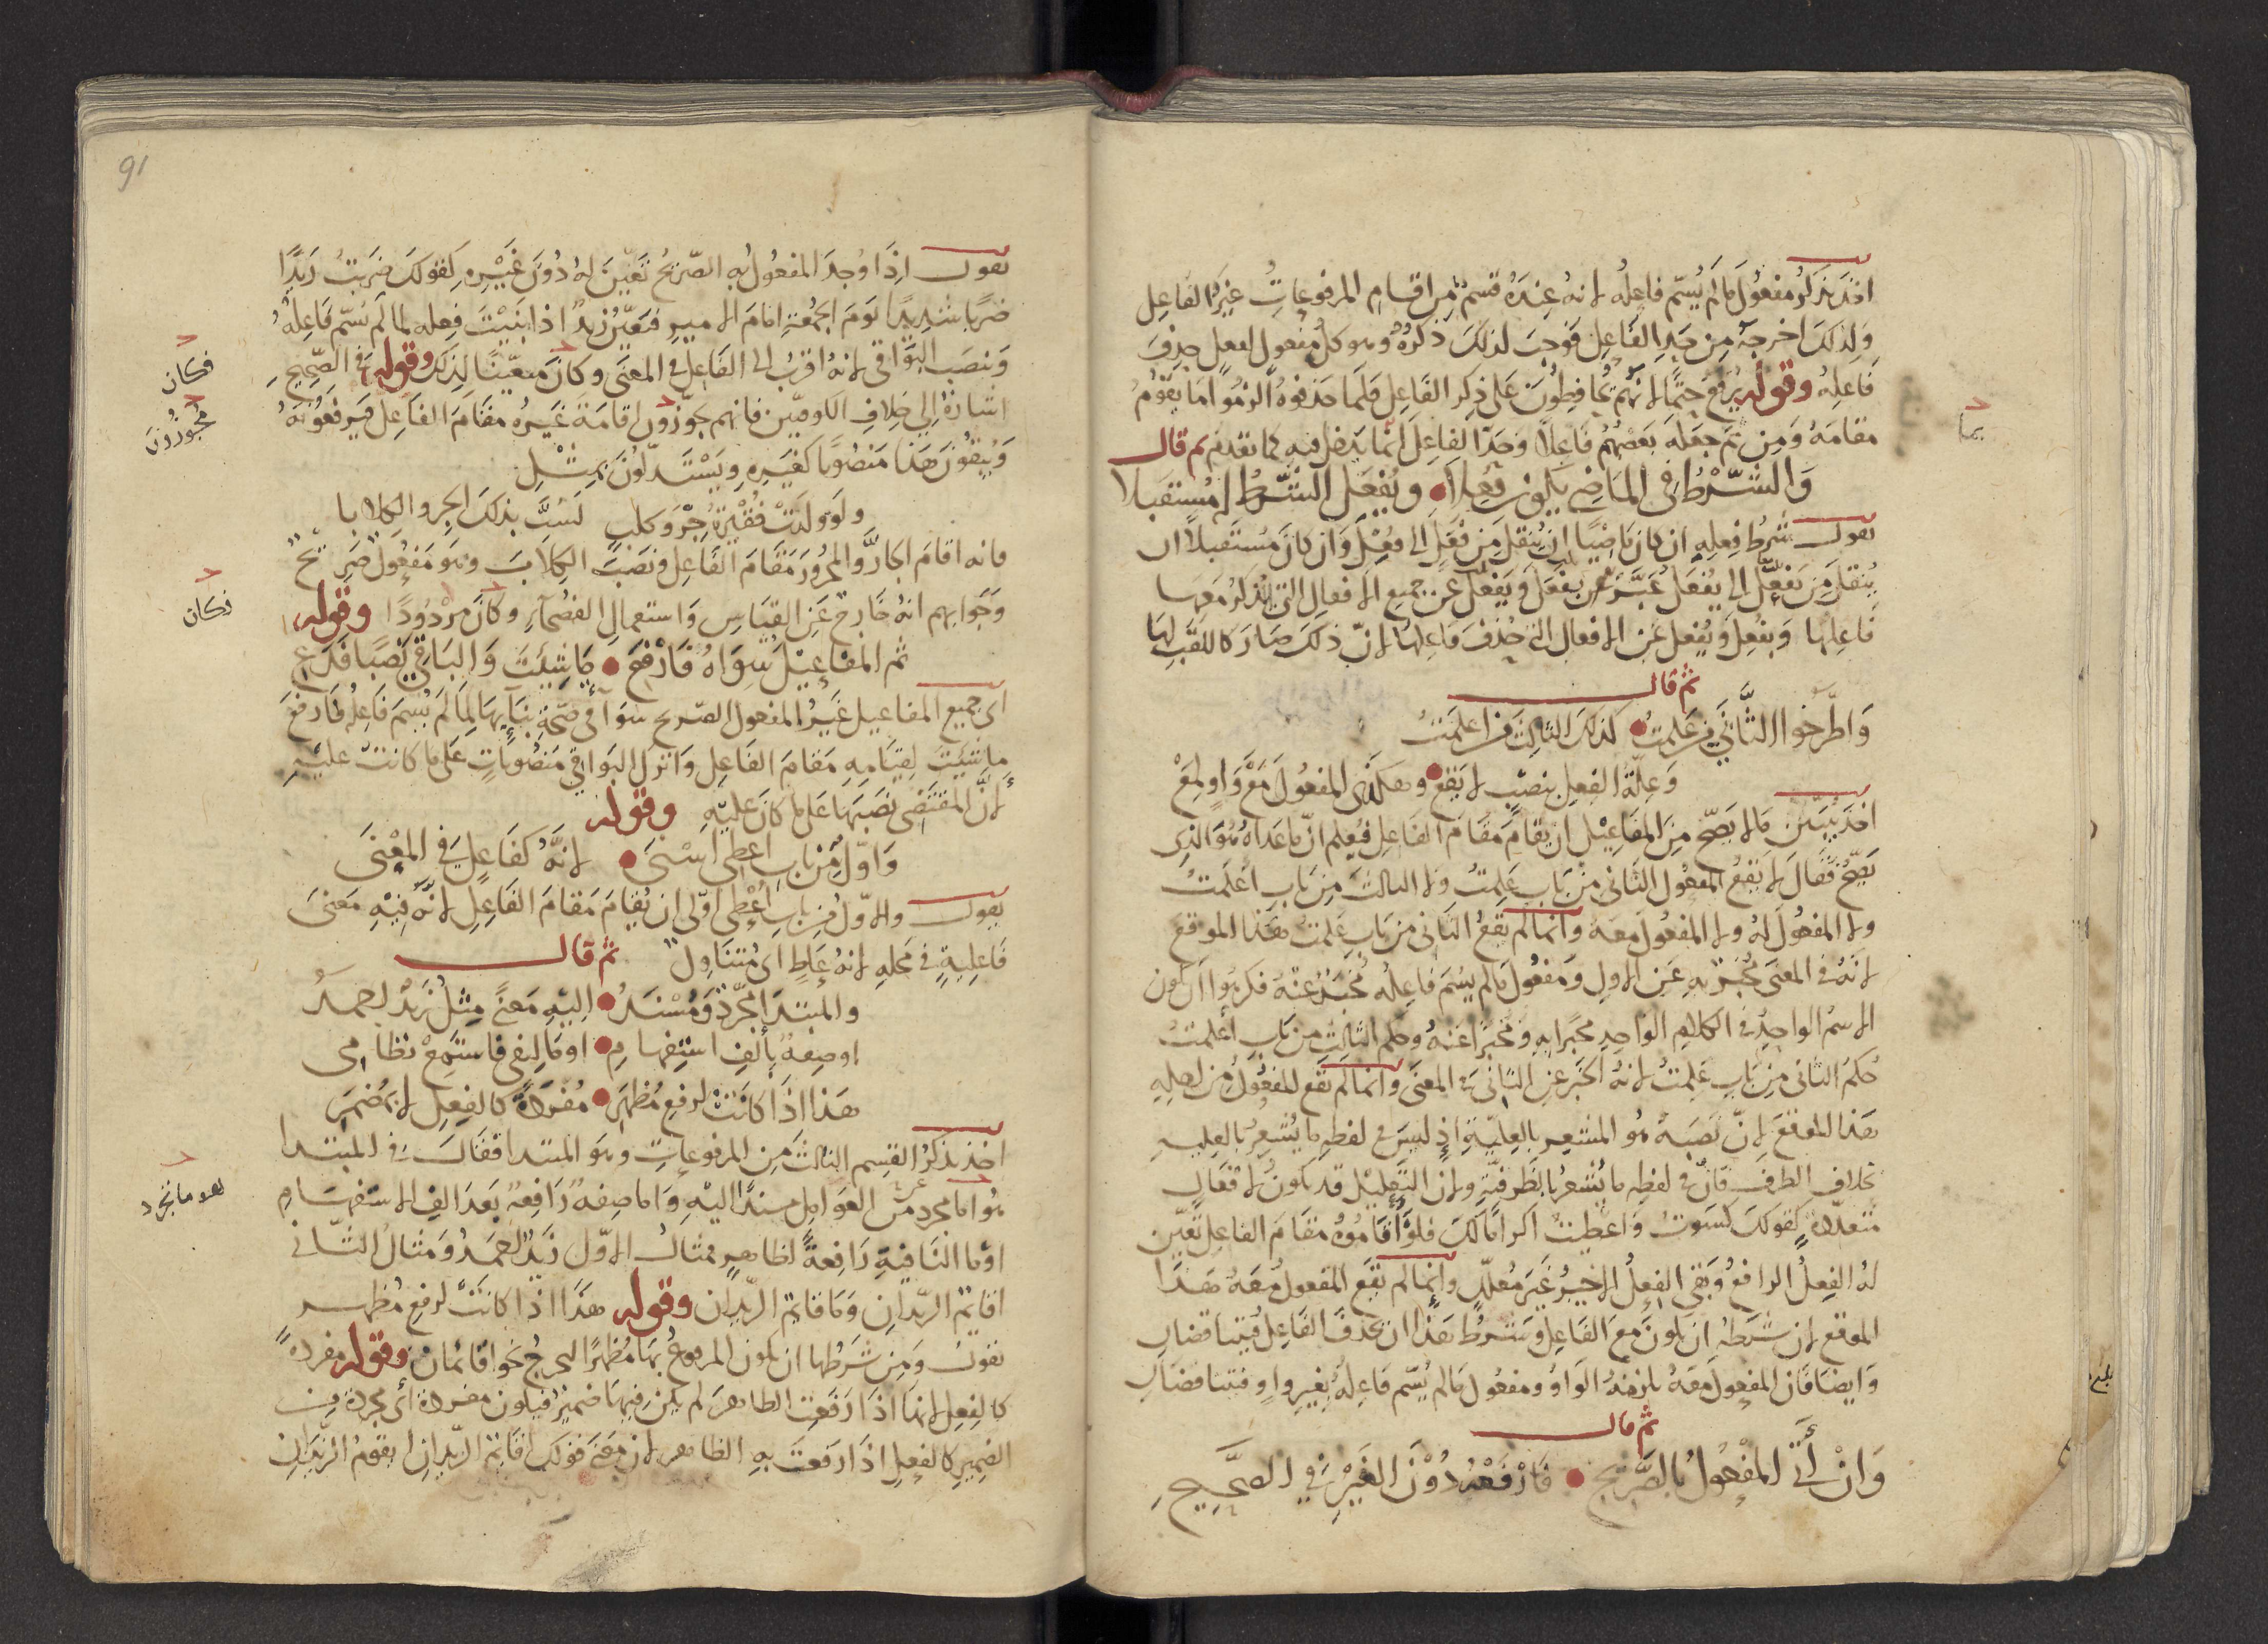 اخذ يذكر مفعول ما لم يسم فاعله لانه عنده قسم من اقسام المرفوعات غير الفاعل
ولذلك اخرجه من حد الفاعل فوجب لذلك ذكره وهو كل مفعول لفعل حذف
فاعله وقوله يرفع حتما لانهم يحافظون على ذكر الفاعل فلما حذفوه الزموا ما يقوم
مقامه ومن ثم جعله بعضهم فاعلا وحد الفاعل انما يدخل فيه كما تقدم ثم قال
بما
والشرط في الماضي يكون فعلا ويفعل الشرط لمستقبلا
يقول شرط فعله ان كان ماضيا ان ينقل من فعل الى فعل وان كان مستقبلا ان
ينقل من يفعل الى يفعل عبر عن بفعل ويفعل عن جميع الافعال التي يذكر معها
فاعلها وبفعل ويفعل عن الافعال التي حذف فاعلها لان ذلك صار كاللقب لها
ثم قال
واطرحوا الثاني من علمت كذلك الثالث من اعلمت
وعلة الفعل بنصب لا يقع وهكذى المفعول مع واو لمع
اخذ يبين ما لا يصح من المفاعيل ان يقام مقام الفاعل فيعلم ان ما عداه هو الذي
يصح فقال لا يقع المفعول الثاني من باب علمت ولا الثالث من باب اعلمت
ولا المفعول له ولا المفعول معه وانما لم يقع الثاني من باب علمت هذا الموقع
لانه في المعنى مخبر به عن الاول ومفعول ما لم يسم فاعله مخبر عنه فكرهوا ان يكون
الاسم الواحد في الكلام الواحد مخبرا به ومخبرا عنه وحكم الثالث من باب اعلمت
حكم الثاني من باب علمت لانه الخبر عن الثاني في المعنى وانما لم يقع المفعول من اجله
هذا الموقع لان نصبه هو المشعر بالعلية اذ ليس في لفظه ما يشعر بالعلية
بخلاف الظرف فان في لفظه ما يشعر بالظرفية ولان التعليل قد يكون لافعال
متعددة كقولك كسوت واعطيت اكراما لك فلو اقاموه مقام الفاعل تعين
له الفعل الرافع وبقي الفعل الاخير غير معلل وانما لم يقع المفعول معه هذا
الموقع لان شرطه ان يكون مع الفاعل وشرط هذا ان يحذف الفاعل فيتناقضان
وايضا فان المفعول معه يلزمه الواو ومفعول ما لم يسم فاعله بغير واو فتناقضان
ثم قال
وان أتى المفعول بالصريح فارفعه دون الغير في الصحيح
91
يقول اذا وجد المفعول به الصريح تعين له دون غيره كقولك ضربت زيدا
ضربا شديدا يوم الجمعة امام الامير فتعين زيد اذا بنيت فعله لما لم يسم فاعله
ونصب البواقي لانه اقرب الى الفاعل في المعنى وكان متعينا لذلك وقوله في الصحيح
فكان
اشارة الى خلاف الكوفيين فانهم يجوزون اقامة غيره مقام الفاعل فيرفعونه
مجوزون
ويبقون هذا منصوبا كغيره ويستدلون بمثل
ولو ولدت فقيرة جرو كلب لسب بذلك الجرو الكلابا
فانه اقام الجار والمجرور مقام الفاعل ونصب الكلاب وهو مفعول صريح
وجوابهم انه خارج عن القياس واستعمال الفصحاء وكان مردودا وقوله
فكان
ثم المفاعيل سواه فارفع ما شيت والباقي نصبا فدع
اي جميع المفاعيل غير المفعول الصريح سواء في صحة بنائها لما لم يسم فاعله فارفع
ما شيت لقيامه مقام الفاعل واترك البواقي منصوبات على ما كانت عليه
لان المقتضى نصبها على ما كان عليه وقوله
واول من باب اعطى اسنى لانه كفاعل في المعنى
يقول والاول من باب اعطى اولى ان يقام مقام الفاعل لانه فيه معنى
فاعلية في محله لانه عاط اي متناول ثم قال
والمبتدا مجرد ومسند اليه معنى مثل زيد احمد
او صفة بألف استفهام او ما لنفي فاستمع نظامي
هذا اذا كانت لرفع مظهر مفردة كالفعل لا بمضمر
اخذ يذكر القسم الثالث من المرفوعات وهو المبتدا فقال في المبتدا
هو اما مجرد من العوامل مسندا اليه واما صفة رافعة بعد الف الاستفهام
هو ما تجرد
او ما النافية رافعة لظاهر فمثال الاول زيد احمد ومثال الثاني
اقائم الزيدان وما قائم الزيدان وقوله هذا اذا كانت لرفع مظهر
يقول ومن شرطها ان يكون المرفوع بها مظهرا ليخرج نحو اقائمان وقوله مفردة
كالفعل لانها اذا رفعت الظاهر لم يكن فيها ضمير فيكون مفردة أي مجردة من
الضمير كالفعل اذا رفعت به الظاهر لان معنى قولك اقائم الزيدان ايقوم الزيدان